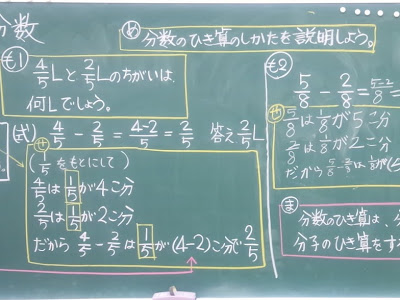 分数
め 分数のひき算のしかたを説明しよう。
も1
4/5Lと2/5Lのちがいは、
何Lでしょう。
(式) 4/5 - 2/5 = 4-2/5 = 2/5 答え2/5L
(1/5をもとにして)
4/5は1/5が4こ分
2/5は1/5が2こ分
だから 4/5 - 2/5は1/5が(4-2)こ分で2/5
も2
5/8 - 2/8 = 5-2/8 =
5/8は1/8が5こ分
2/8は1/8が2こ分
だから 5/8 - 2/8は1/8が
ま
分数のひき算は、
分子のひき算をする